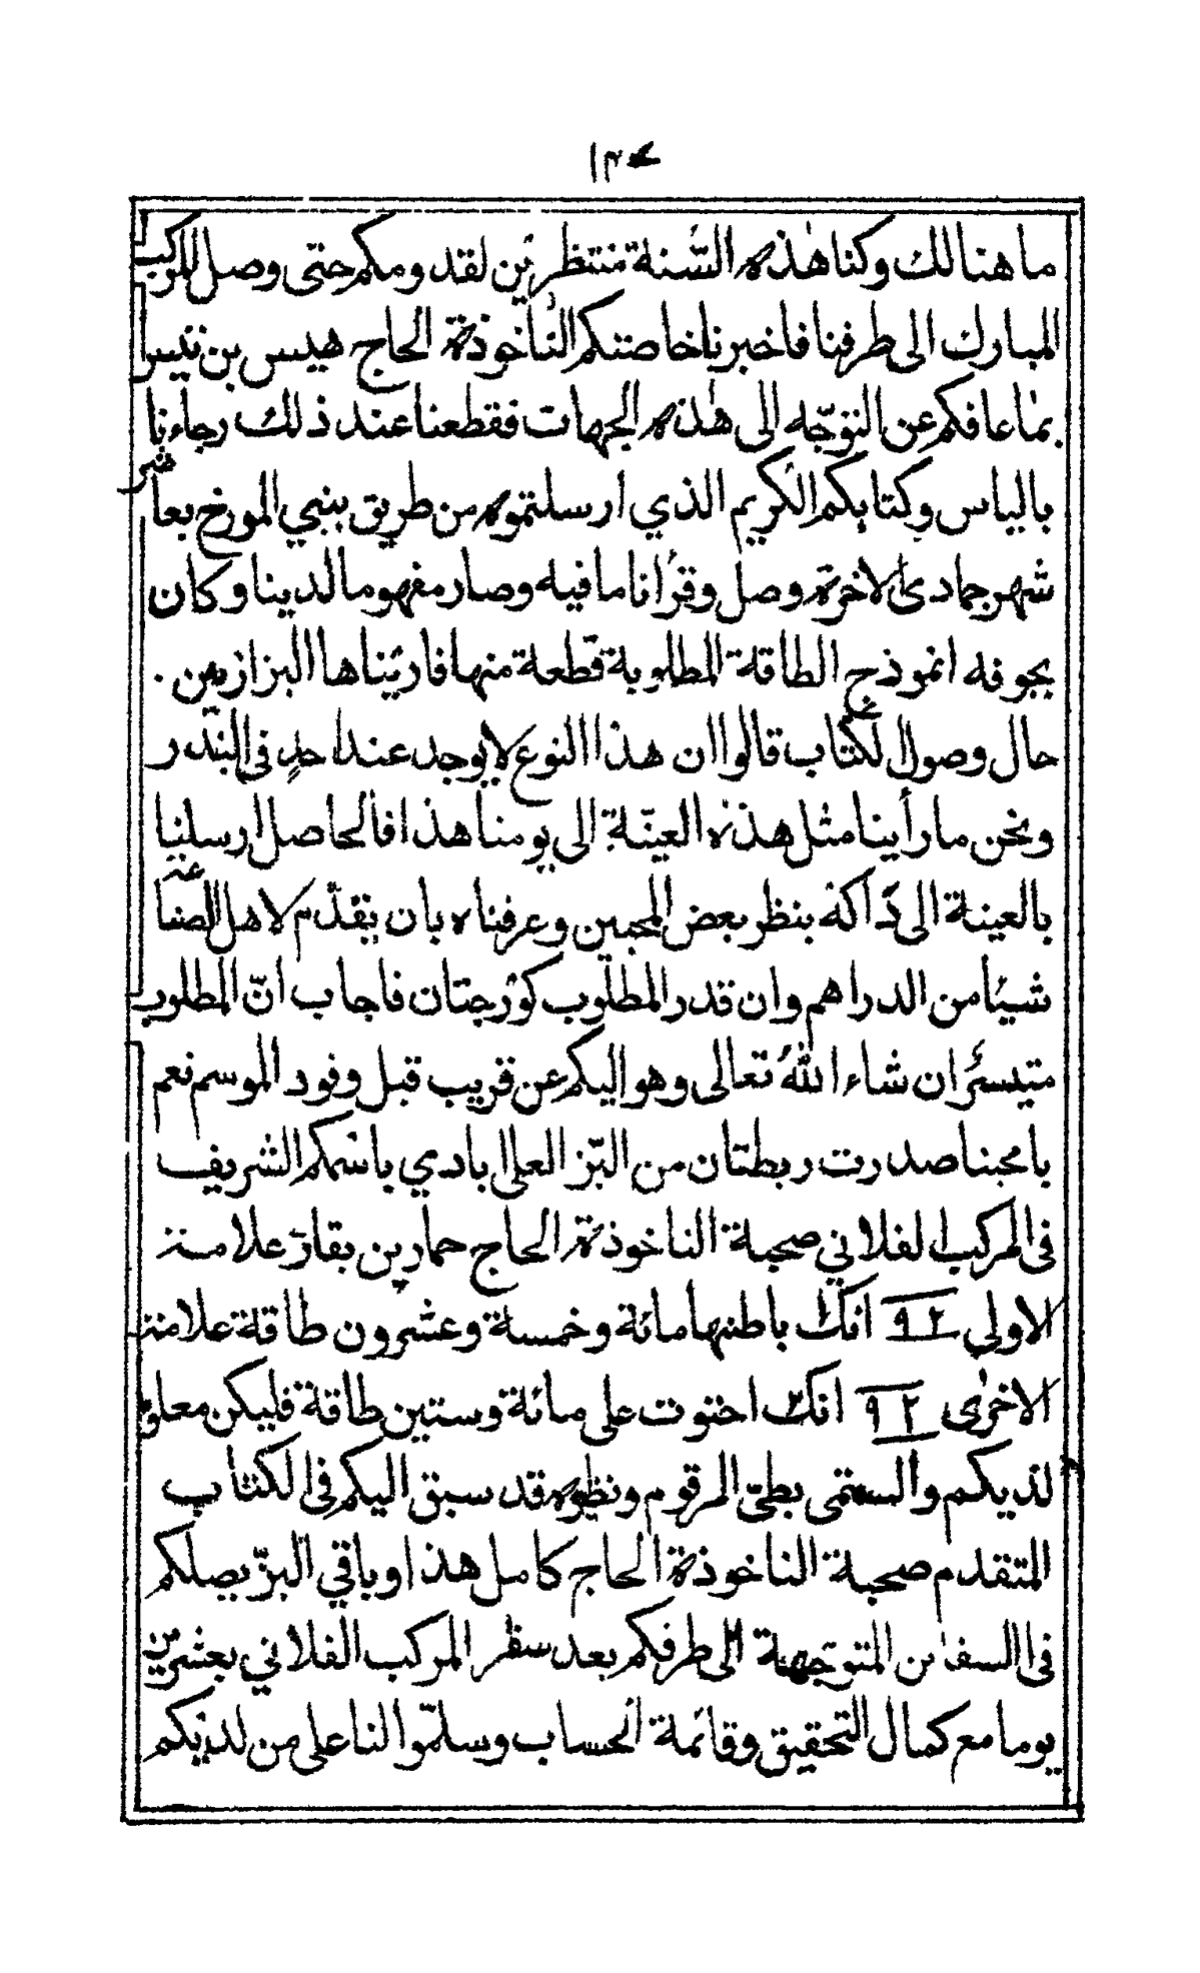 ما هنالك وكنا هذه السّنة منتظرين لقدومكم حتى وصل المركب
المبارك الى طرفنا فاخبرنا خاصتكم النّاخوذة الحاج هيس بن تيس
بما عافكم عن التوجّه الى هٰذه الجهات فقطعنا عند ذلك رجاءنا
بالياس وكتابكم الكريم الذي ارسلتموه من طريق بنبي المورخ بعاشر
شهر جمادى الاخرة وصل وقرأنا ما فيه وصار مفهوما لدينا وكان
بجوفه انموذج الطاقة المطلوبة قطعة منها فاريناها البزازين
حال وصول الكتاب قالوا ان هذا النوع لا يوجد عند احدٍ فى البندر
ونحن ما رأينا مثل هذه العيّنة الى يومنا هذا فالحاصل ارسلنا
بالعينة الى دَاكة بنظر بعض المحبين وعرفناه بان يقدّم لاهل الصنعة
شيئا من الدراهم وان قدر المطلوب كورجتان فاجاب انّ المطلوب
متيسّر ان شاء اللّٰه تعالى وهو اليكم عن قريب قبل وفود الموسم نعم
يا محبنا صدرت ربطتان من البّز العلى ابادي باسمكم الشريف
فى المركب الفلاني صحبة الناخوذة الحاج حمار بن بقار علامة
الاولى ٩٢ انك باطنها مائة وخمسة وعشرون طاقة علامة
الاخرى ٩٢ انك احتوت على مائة وستين طاقة فليكن معلوم
لديكم والستمى بطىّ المرقوم ونظيره قد سبق اليكم فى الكتاب
المتقدم صحبة الناخوذة الحاج كامل هذا وباقي البزّ يصلكم
فى السفائن المتوجهة الى طرفكم بعد سفر المركب الفلاني بعشرين
يوما مع كمال التحقيق وقائمة الحساب وسلّموا لنا على من لديكم